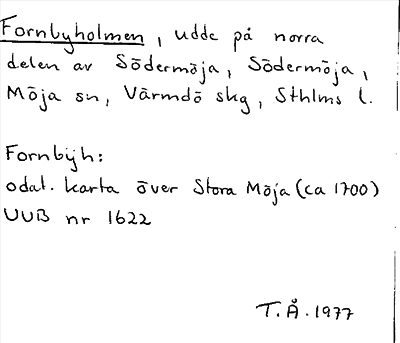 Fornbyholmen, udde på norra
delen av Södermöja, Södermöja,
Möja sn, Värmdö skg, Sthlms l.
Fornbÿh:
odat. karta över Stora Möja (ca 1700)
UUB nr 1622
T.Å. 1977